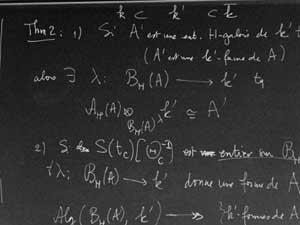 k ⊂ k' ⊂ k̄
Thm 2: 1) Si A' est une ext. H-galois de k' t
(A' est une k'-forme de A)
alors ∃ λ: B_H(A) → k' tq
A_H(A) ⊗_{B_H(A)λ} k' ≅ A'
2) Si S(t_c)[Θ_c^{-1}] est entier sur B_H
∀λ: B_H(A) → k' donne une forme de A
Alg(B_H(A), k') → {k'-formes de A